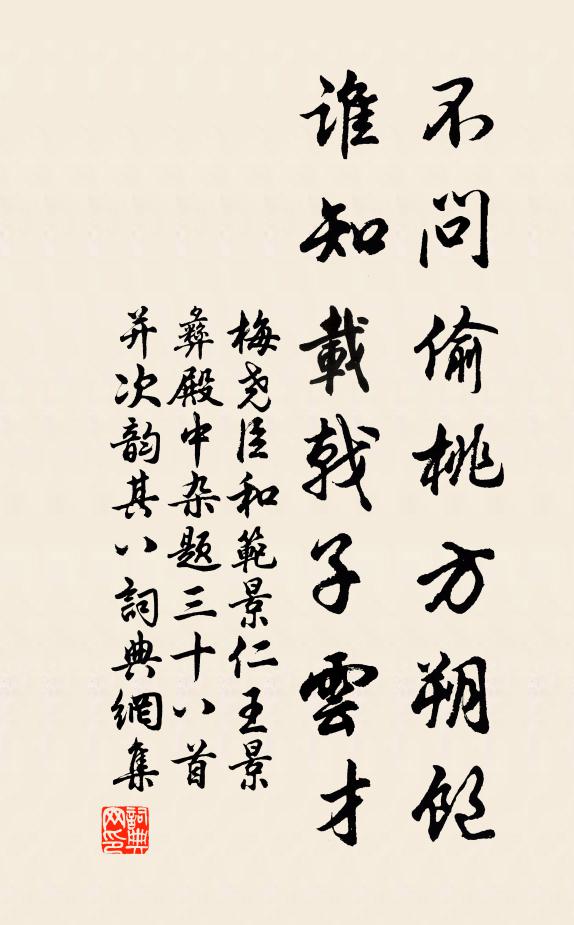 不問偷桃方朔飽
誰知載戟子雲才
梅尧臣和範景仁王景
彝殿中杂题三十八首
并次韵其八詞典網集
詞典网印